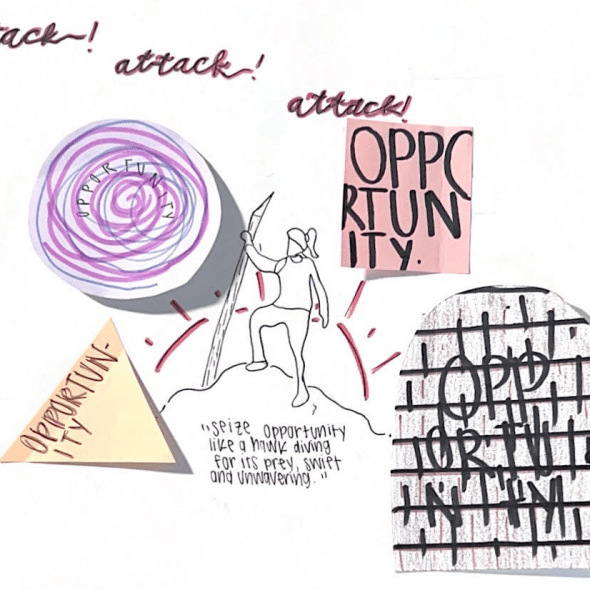 tack~!
attack~!
attack!
OPPORTUNITY
OPPO
RTUN
ITY.
OPPORTUN-
ITY
"seize opportunity
like a hawk diving
for its prey, swift
and unwavering."
OPP
ORTU
NITY